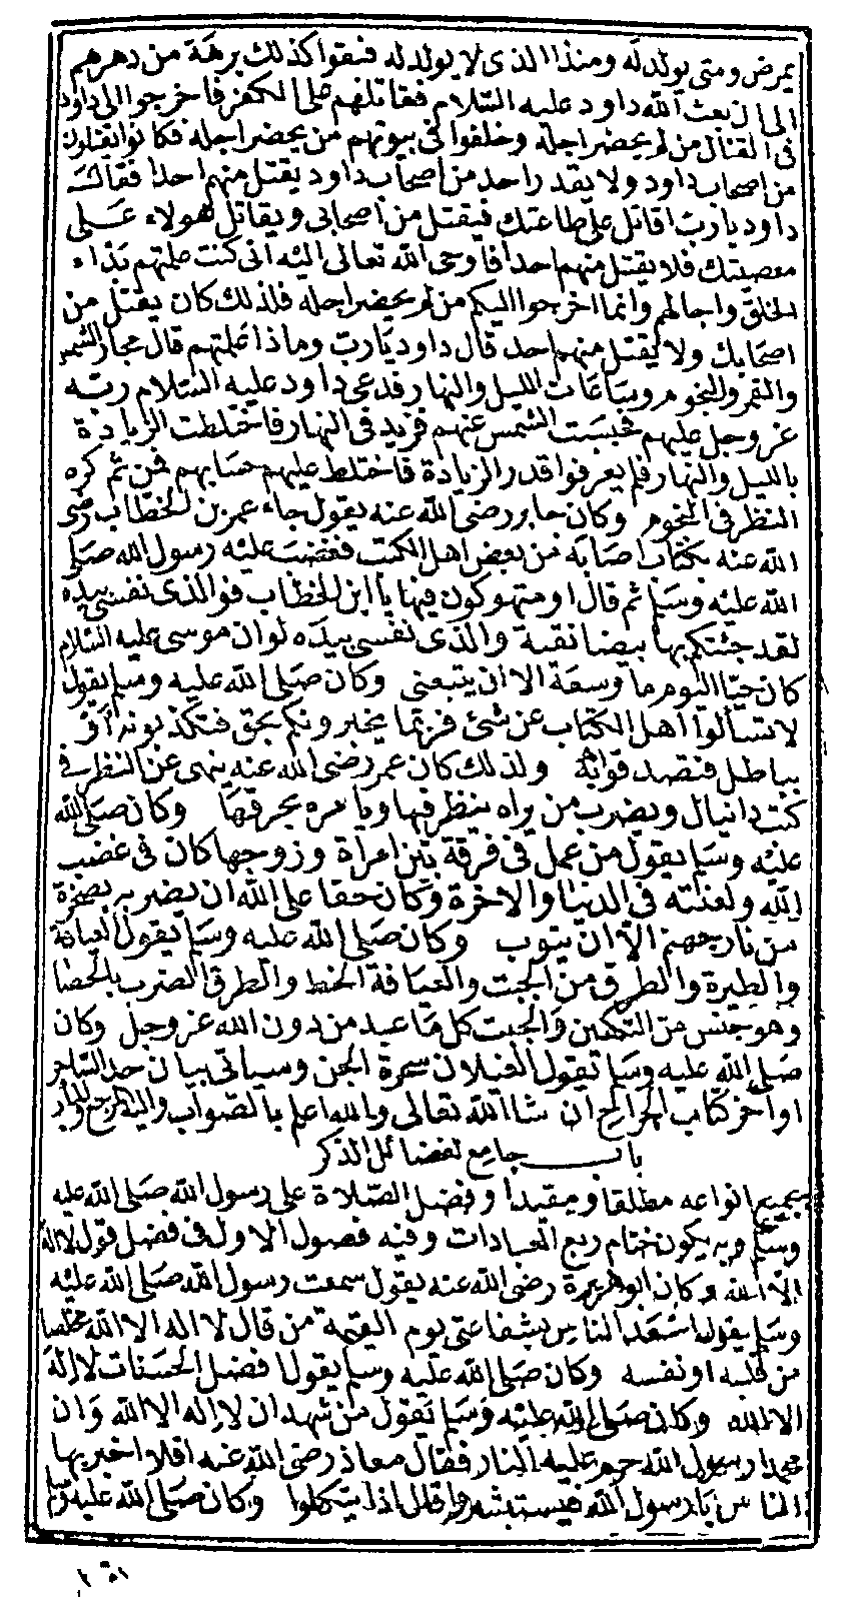 يمرض ومتى يولد له ومنذا الذى لا يولد له فبقوا كذلك برهة من دهرهم
الى ان بعث الله داود عليه السلام فقاتلهم على الكفر فاخرجوا الى داود
فى القتال من لم يحضر اجله وخلفوا فى بيوتهم من يحضر اجله فكانوا يقتلون
من اصحاب داود ولا يقدر احد من اصحاب داود يقتل منهم احدا فقال
داود يارب اقاتل على طاعتك فيقتل من اصحابى ويقاتل هولاء على
معصيتك فلا يقتل منهم احدا فاوحى الله تعالى اليه انى كنت علمتهم بداء
الخلق واجالهم وانما اخرجوا اليكم من لم يحضر اجله فلذلك كان يقتل من
اصحابك ولا يقتل منهم احد قال داود يارب وماذا علمتهم قال مجار الشمس
والقمر والنجوم وساعات الليل والنهار فدعى داود عليه السلام ربه
عز وجل عليهم فحبست الشمس عنهم فزيد فى النهار فاختلطت الزيادة
بالليل والنهار فلم يعرفوا قدر الزيادة فاختلط عليهم حسابهم فمن ثم كره
النظر فى النجوم وكان جابر رضى الله عنه يقول جاء عمر بن الخطاب رضى
الله عنه بكتاب اصابه من بعض اهل الكتب فغضب عليه رسول الله صلى
الله عليه وسلم ثم قال او متهوكون فيها يا ابن الخطاب فوالذى نفسى بيده
لقد جئتكم بها بيضا نقية والذى نفسى بيده لو ان موسى عليه السلام
كان حيا اليوم ما وسعه الا ان يتبعنى وكان صلى الله عليه وسلم يقول
لا تسالوا اهل الكتاب عن شئ فربما يخبرونكم بحق فتكذبونه او
بباطل فتصدقوا به ولذلك كان عمر رضى الله عنه ينهى عن النظر فى
كتب دانيال ويضرب من راه ينظر فيها ويامره بحرقها وكان صلى الله
عليه وسلم يقول من عمل فى فرقة بين امراة وزوجها كان فى غضب
الله ولعنته فى الدنيا والاخرة وكان حقا على الله ان يضربه بصخرة
من نار جهنم الا ان يتوب وكان صلى الله عليه وسلم يقول العيافة
والطيرة والطرق من الجبت والعيافة الخط والطرق الضرب بالحصا
وهو جنس من التكهين والجبت كل ما عبد من دون الله عز وجل وكان
صلى الله عليه وسلم يقول الغيلان سحرة الجن وسياتى بيان حد الساحر
اواخر كتاب الجراح ان شا الله تعالى والله اعلم بالصواب واليه المرجع والماب
باب جامع لفضائل الذكر
بجميع انواعه مطلقا ومقيدا وفضل الصلاة على رسول الله صلى الله عليه
وسلم وبه يكون ختام ربع العبادات وفيه فصول الاول فى فضل قول لا اله
الا الله وكان ابو هريرة رضى الله عنه يقول سمعت رسول الله صلى الله عليه
وسلم يقول اسعد الناس بشفاعتى يوم القيمة من قال لا اله الا الله مخلصا
من قلبه او نفسه وكان صلى الله عليه وسلم يقول افضل الحسنات لا اله
الا الله وكان صلى الله عليه وسلم يقول من شهد ان لا اله الا الله وان
محمدا رسول الله حرم عليه النار فقال معاذ رضى الله عنه افلا اخبر بها
الناس يا رسول الله فيستبشروا قال اذا يتكلوا وكان صلى الله عليه وسلم